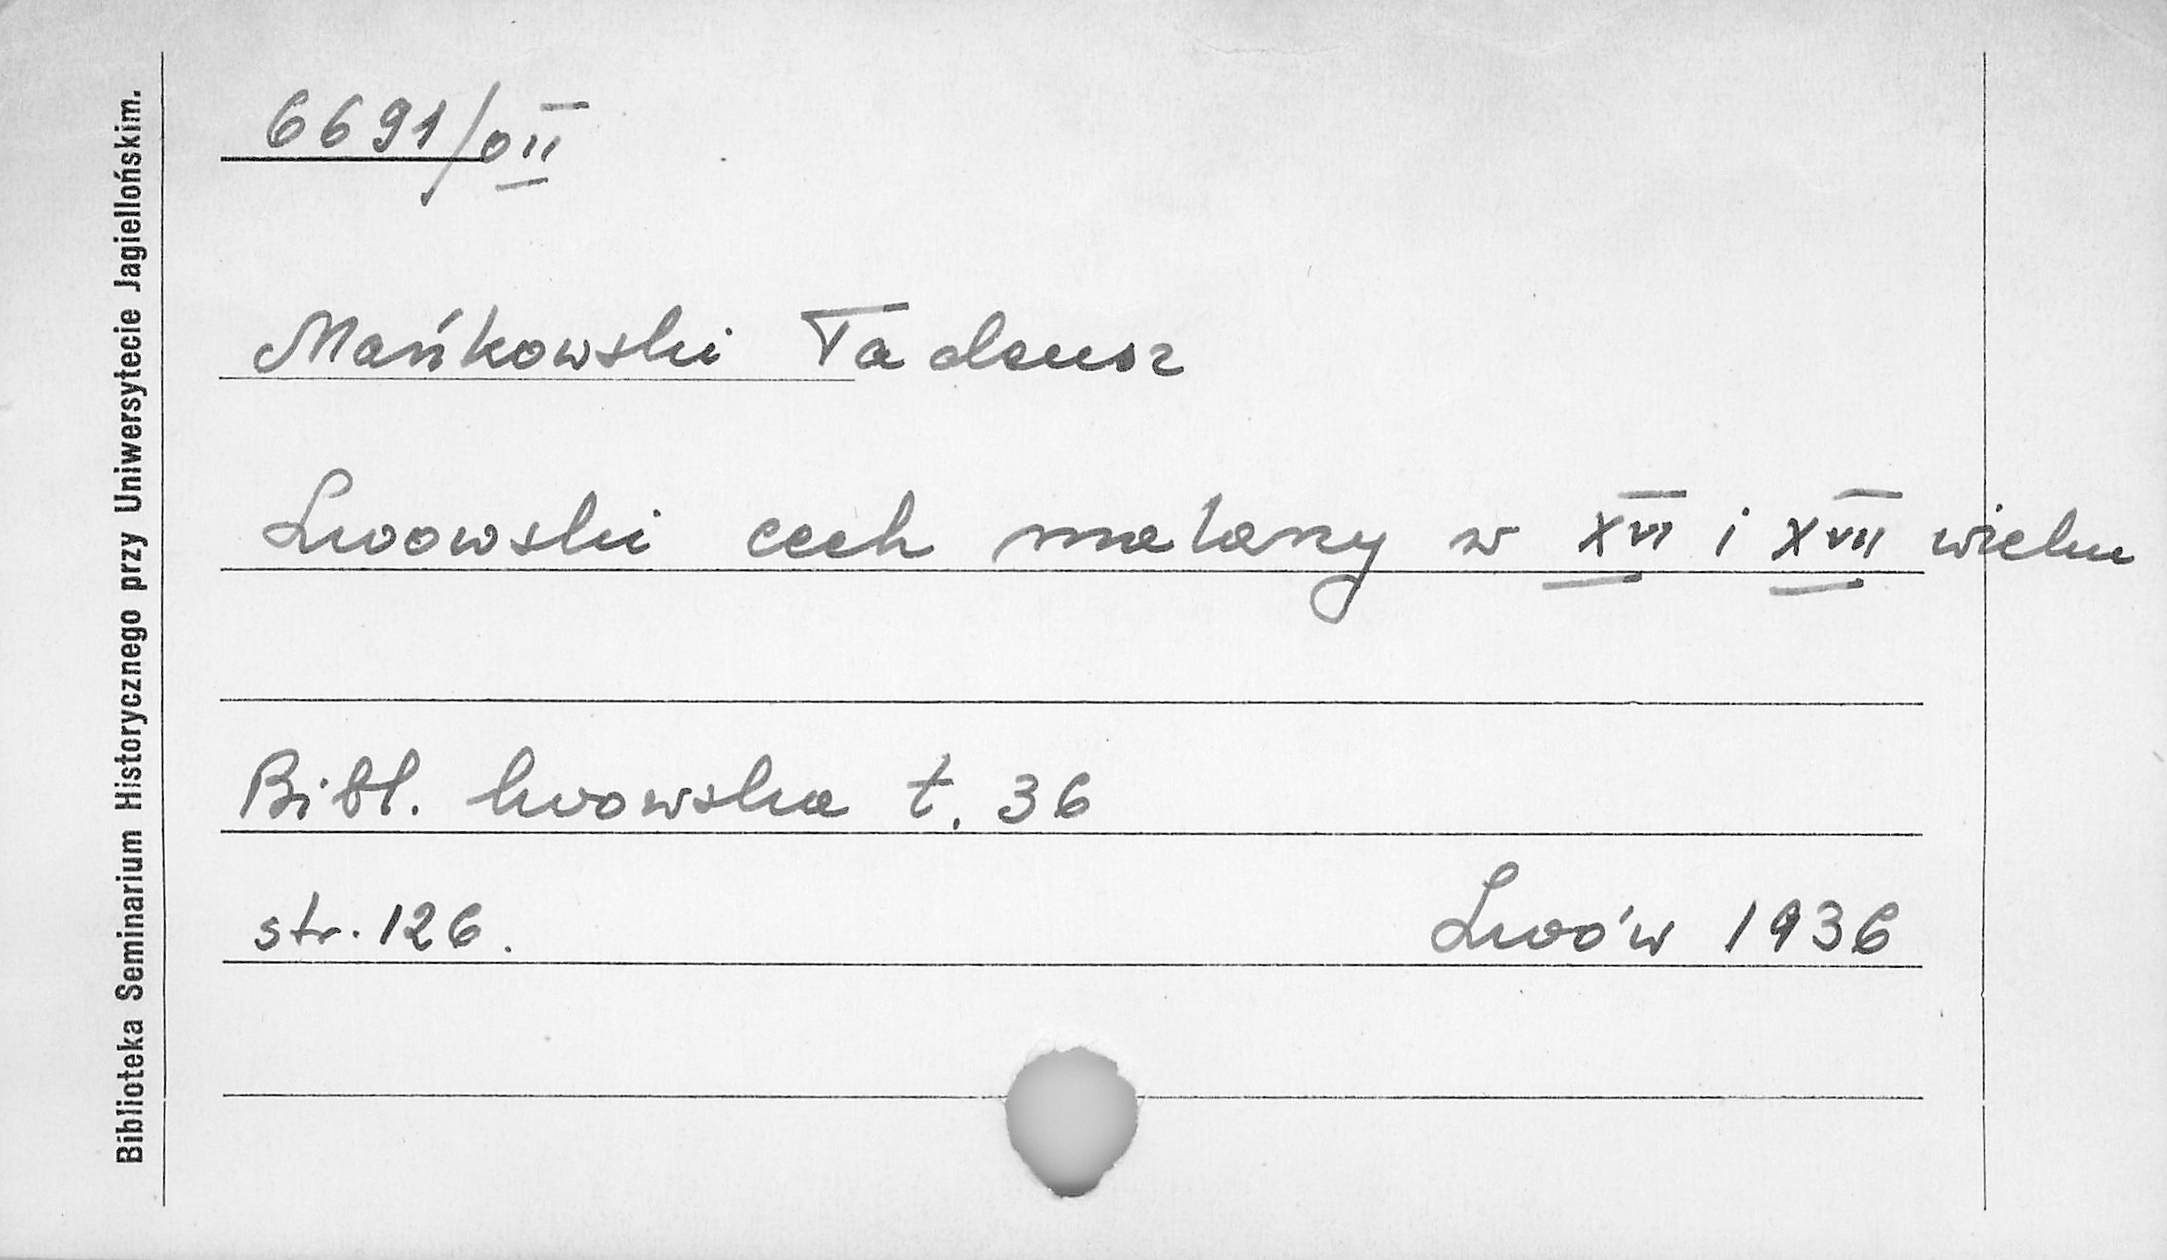 Biblioteka Seminarium Historycznego przy Uniwersytecie Jagiellońskim.
6691/0II
Mańkowski Tadeusz
Lwowski cech malarzy w XVI i XVII wieku
Bibl. lwowska t. 36
str. 126.
Lwów 1936